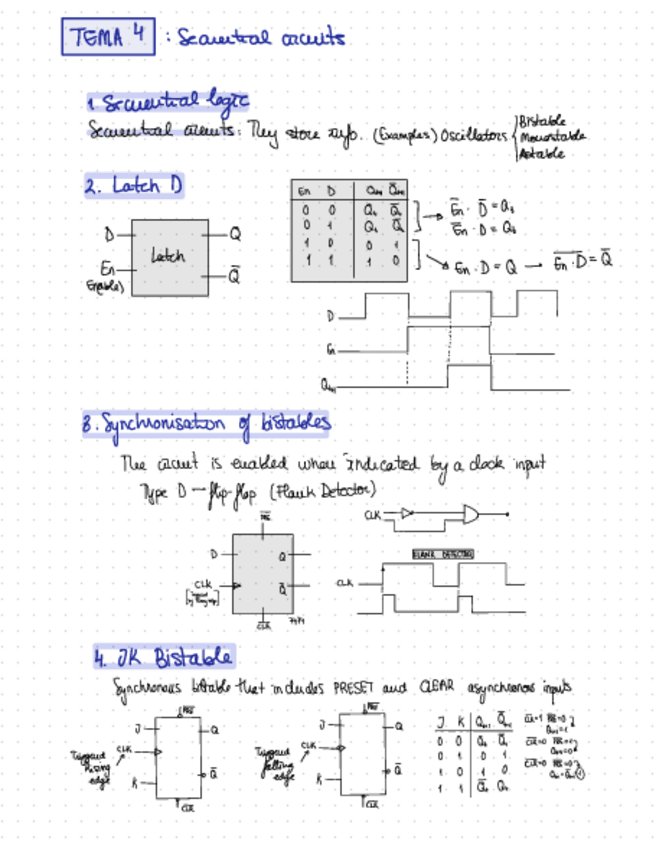 TEMA 4 : Sequential circuits
1 Sequential logic
Sequential circuits: They store info. (Examples) Oscillators
Bistable
Monostable
Astable
2. Latch D
D
Q
Latch
En
(Enable)
Q̅
En D Qₜ₊₁ Q̅ₜ₊₁
0 0 Qₜ Q̅ₜ
0 1 Qₜ Q̅ₜ
1 0 0 1
1 1 1 0
E̅n̅ · D̅ = Qₜ
E̅n̅ · D = Qₜ
En · D = Q → E̅n̅ ̅·̅ ̅D̅ = Q̅
D
En
Qₜ₊₁
3. Synchronisation of bistables
The circuit is enabled when indicated by a clock input
Type D – flip-flop (Flank Detector)
P̅R̅E̅
D
Q
CLK
Q̅
C̅L̅R̅
7474
CLK
FLANK DETECTOR
CLK
4. JK Bistable
Synchronous bistable that includes PRESET and CLEAR asynchronous inputs
P̅R̅E̅
J
Q
CLK
Triggered
Rising
edge
K
Q̅
C̅L̅R̅
P̅R̅E̅
J
Q
CLK
Triggered
falling
edge
K
Q̅
C̅L̅R̅
J K Qₜ₊₁ Q̅ₜ₊₁
0 0 Qₜ Q̅ₜ
0 1 0 1
1 0 1 0
1 1 Q̅ₜ Qₜ
C̅L̅R̅=1 P̅R̅E̅=0
Qₜ₊₁=1
C̅L̅R̅=0 P̅R̅E̅=1
Qₜ₊₁=0
C̅L̅R̅=0 P̅R̅E̅=0